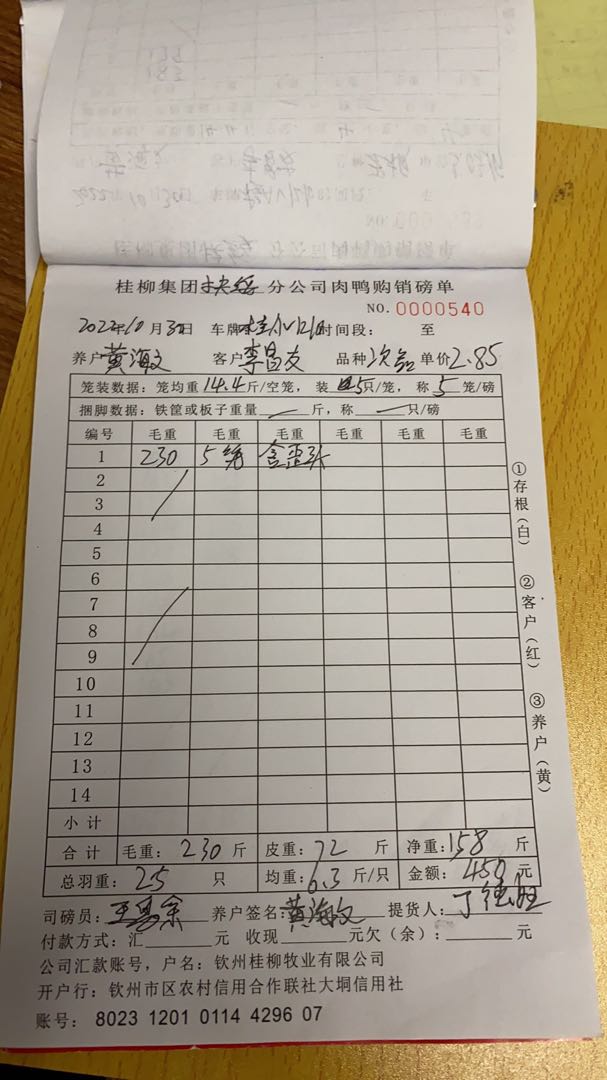 桂柳集团扶绥分公司肉鸭购销磅单
NO. 0000540
2022年10月30日 车牌 时间段: 至
养户 黄海文 客户 李昌友 品种 次品 单价 2.85
笼装数据: 笼均重14.4斤/空笼, 装5只/笼, 称5笼/磅
捆脚数据: 铁筐或板子重量 斤, 称 只/磅
编号 毛重 毛重 毛重 毛重 毛重 毛重
1 230 5笼 含歪头
2
3
4
5
6
7
8
9
10
11
12
13
14
小计
合计 毛重: 230斤 皮重: 72斤 净重: 158斤
总羽重: 25只 均重: 6.3斤/只 金额: 450元
司磅员: 养户签名: 黄海文 提货人:
付款方式: 汇 元 收现 元欠(余): 元
公司汇款账号, 户名: 钦州桂柳牧业有限公司
开户行: 钦州市区农村信用合作联社大垌信用社
账号: 8023 1201 0114 4296 07
①存根(白)
②客户(红)
③养户(黄)